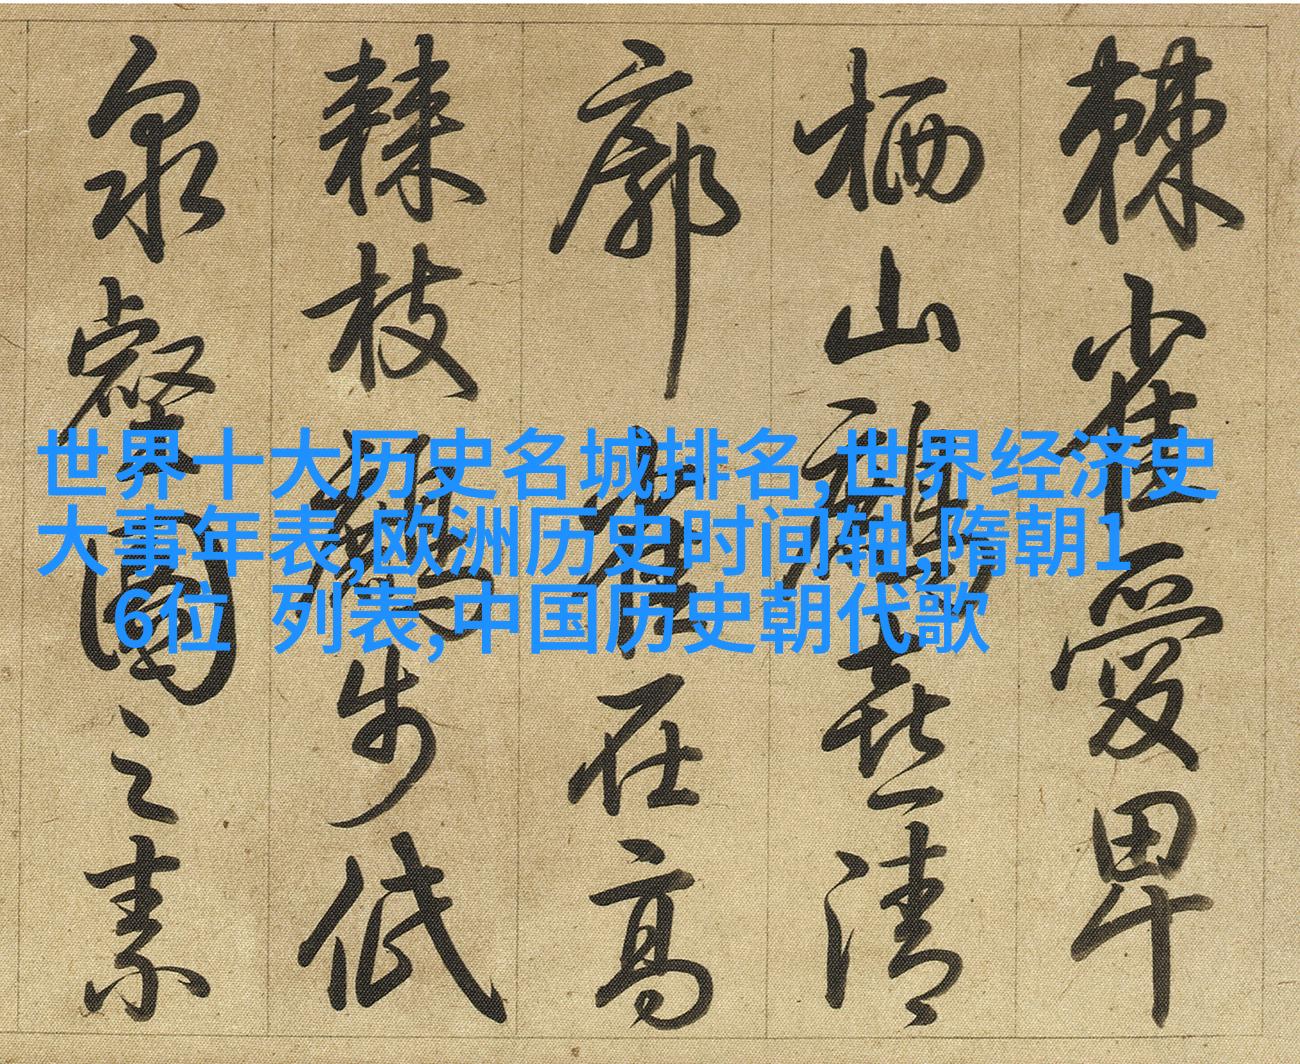 世界十大历史名城排名,世界经济史
大事年表,欧洲历史时间轴,隋朝1
6位 列表,中国历史朝代歌
棘雀愛卑
栖山喜清
廓在高
棘枝步低
泉之素